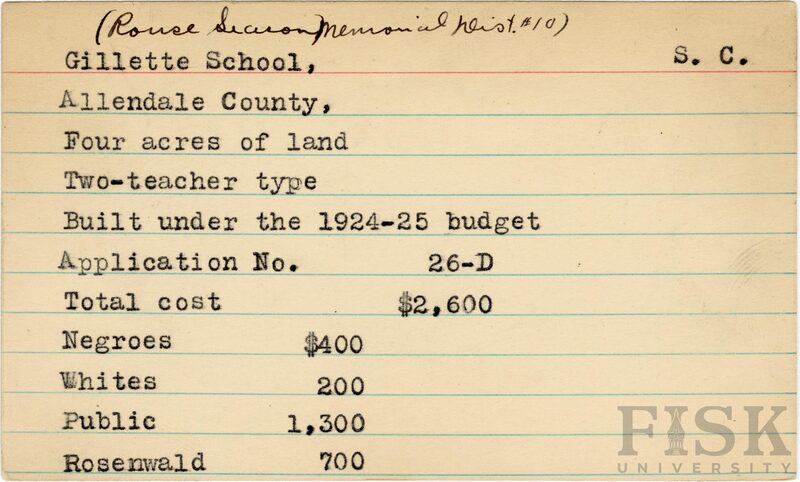 (Rouse Season Memorial Dist. #10)
Gillette School, S. C.
Allendale County,
Four acres of land
Two-teacher type
Built under the 1924-25 budget
Application No. 26-D
Total cost $2,600
Negroes $400
Whites 200
Public 1,300
Rosenwald 700
FISK
UNIVERSITY